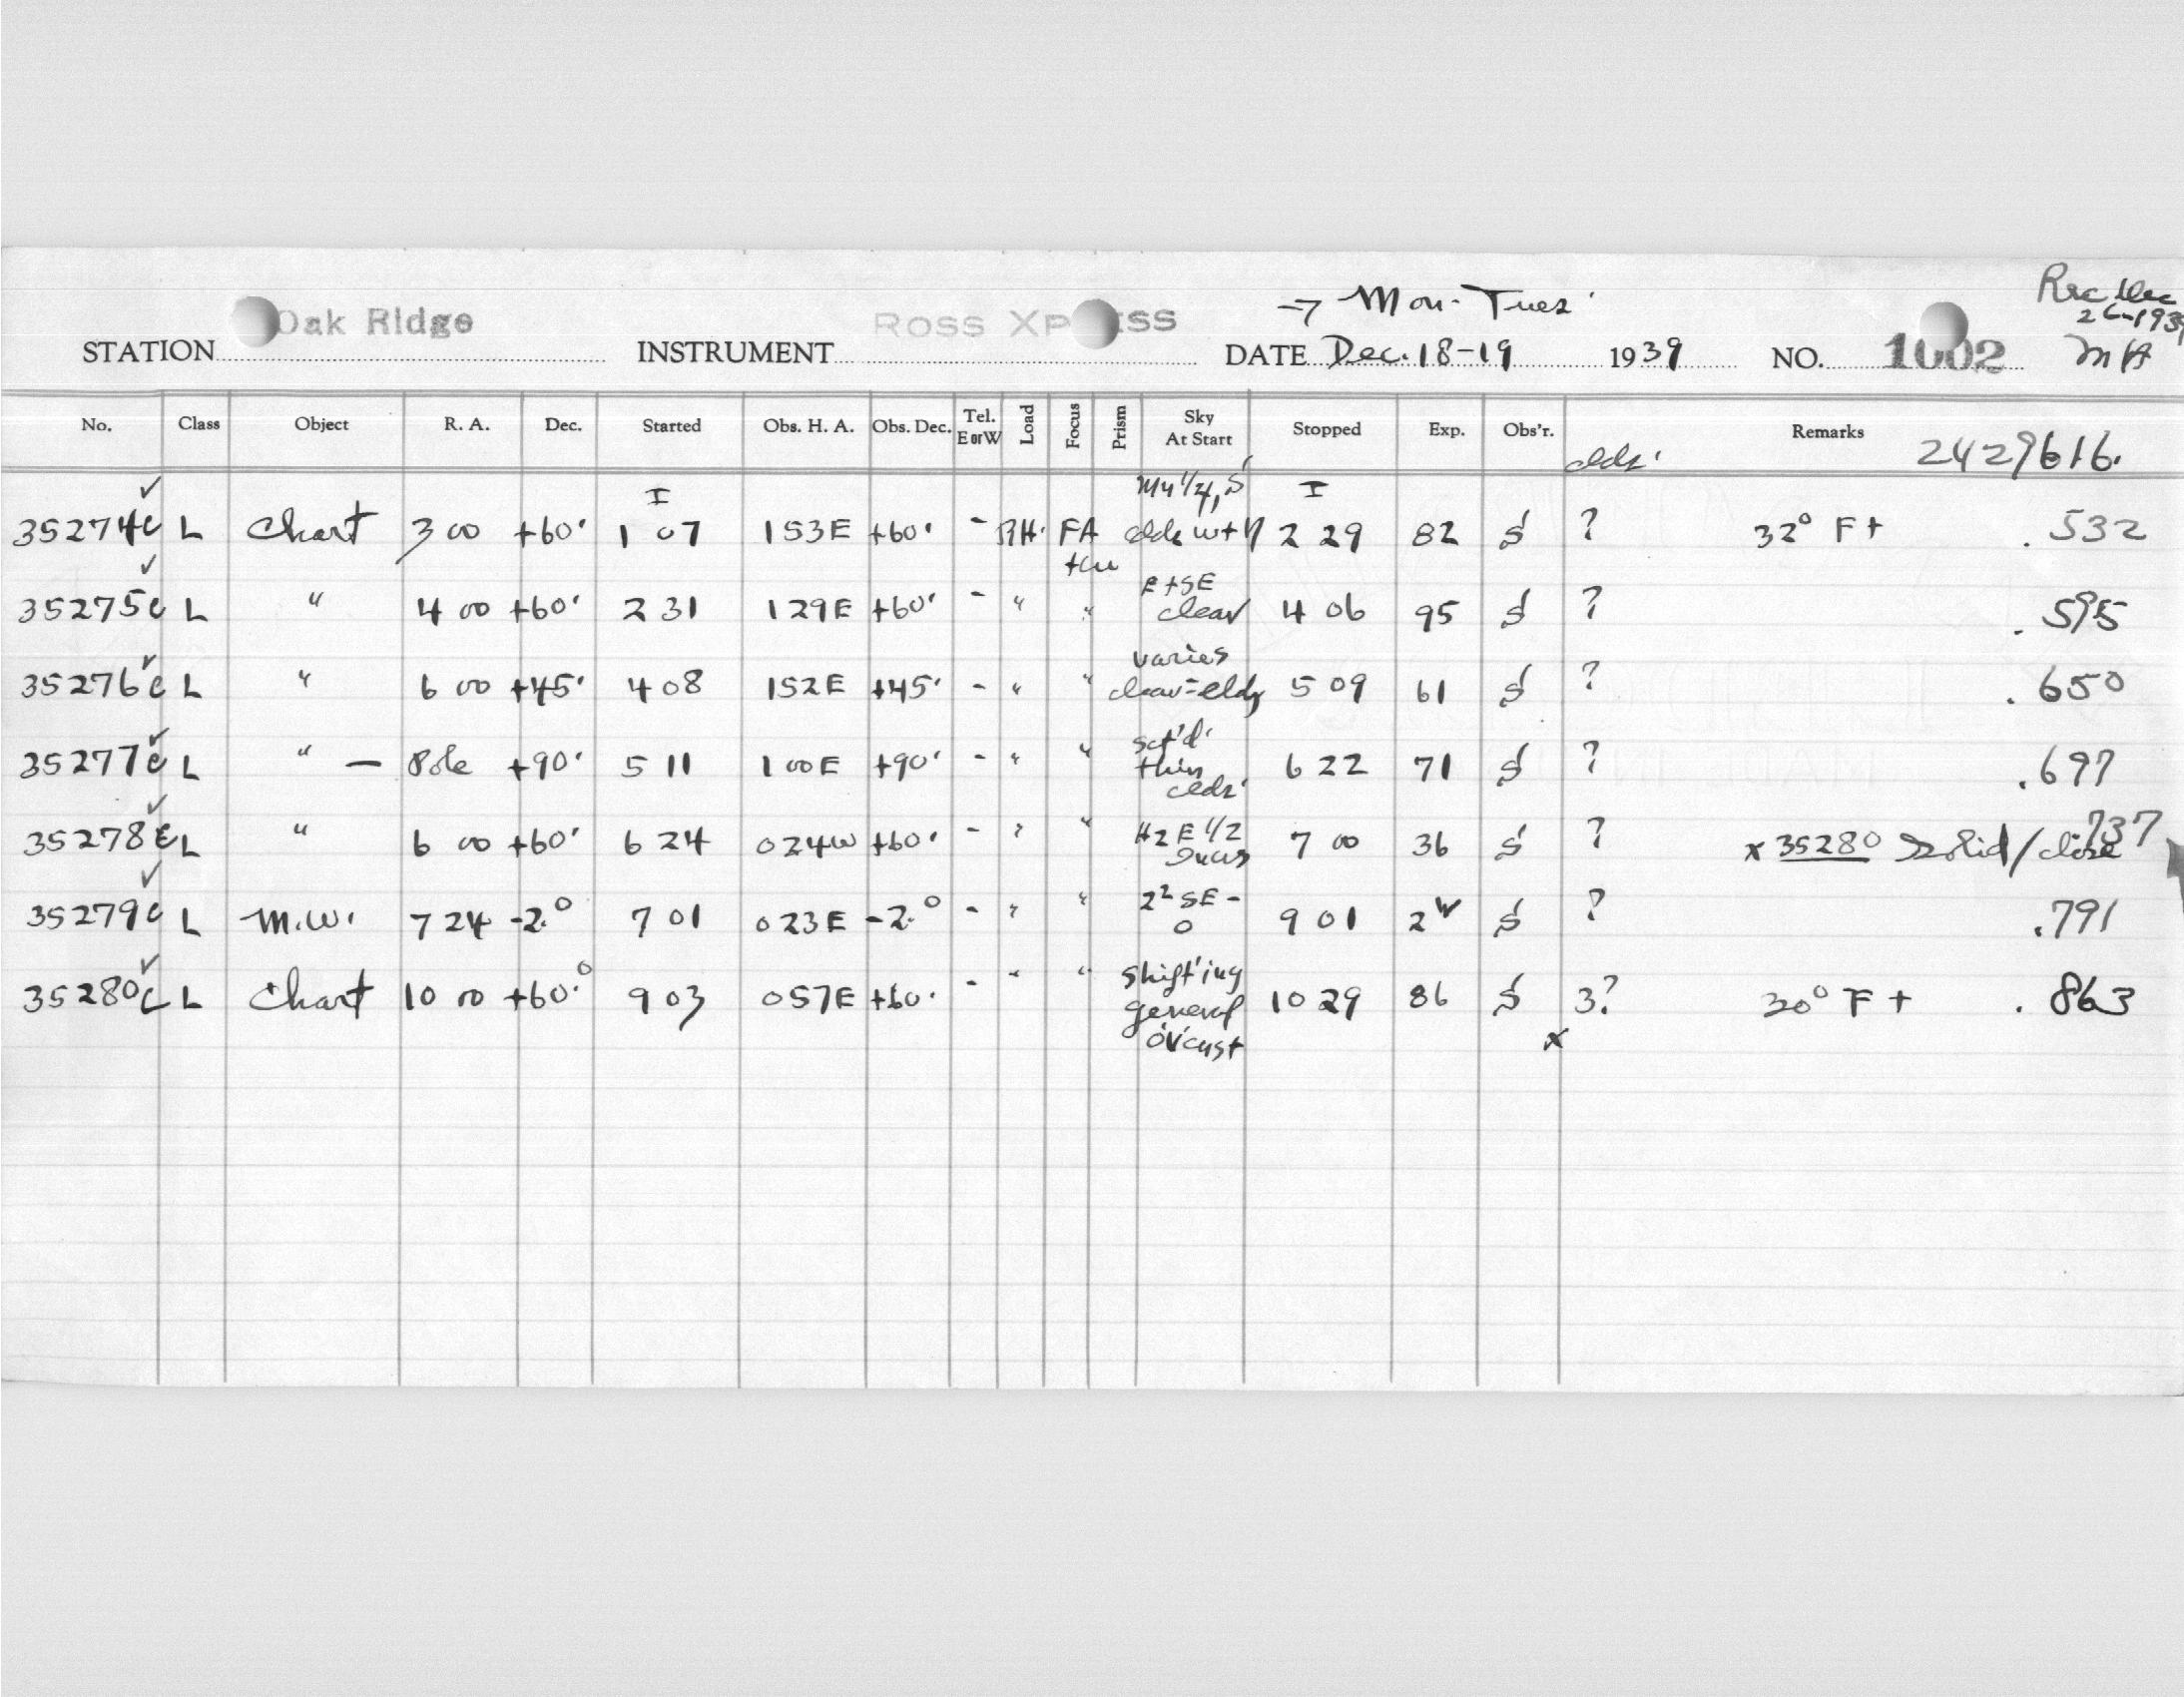 → Mon-Tues. Rec Dec
Oak Ridge 26-1939
STATION INSTRUMENT DATE Dec. 18-19 1939 NO. 1002 MH
No. Class Object R. A. Dec. Started Obs. H. A. Obs. Dec. Tel. E or W Load Focus Prism Sky At Start Stopped Exp. Obs'r. Remarks
clds. 2429616.
35274c L Chart 3 00 +60° I 1 07 153E +60° - FA I 2 29 82 S ? 32° F+ .532
35275c L " 4 00 +60° 2 31 129E +60° - " " E+SE clear 4 06 95 S ? .595
35276c L " 6 00 +45° 4 08 152E +45° - " " varies clear-cldy 5 09 61 S ? .650
35277c L " — Pole +90° 5 11 100E +90° - " " sct'd. thin clds. 6 22 71 S ? .697
35278c L " 6 00 +60° 6 24 024W +60° - " " 7 00 36 S ? x 35280 solid/close .737
35279c L M.W. 7 24 -2.° 7 01 023E -2.° - " " 2² SE - 0 9 01 S ? .791
35280c L Chart 10 00 +60.° 9 03 057E +60° - " " shift'ing general ov'cast 10 29 86 S 3? 30° F+ .863
x